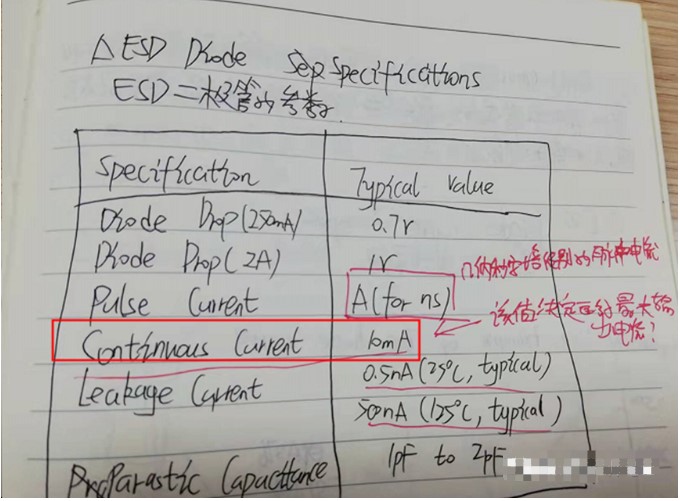 △ ESD Diode Sep Specifications
ESD二极管的参数
Specification Typical Value
Diode Drop (250mA) 0.7V
Diode Drop (2A) 1V
几纳秒安培级别的脉冲电流
Pulse Current A (for ns)
该值决定了最大输
出电流?
Continuous Current 10mA
Leakage Current 0.5nA (25°C, typical)
500nA (125°C, typical)
Parastic Capacitance 1pF to 2pF